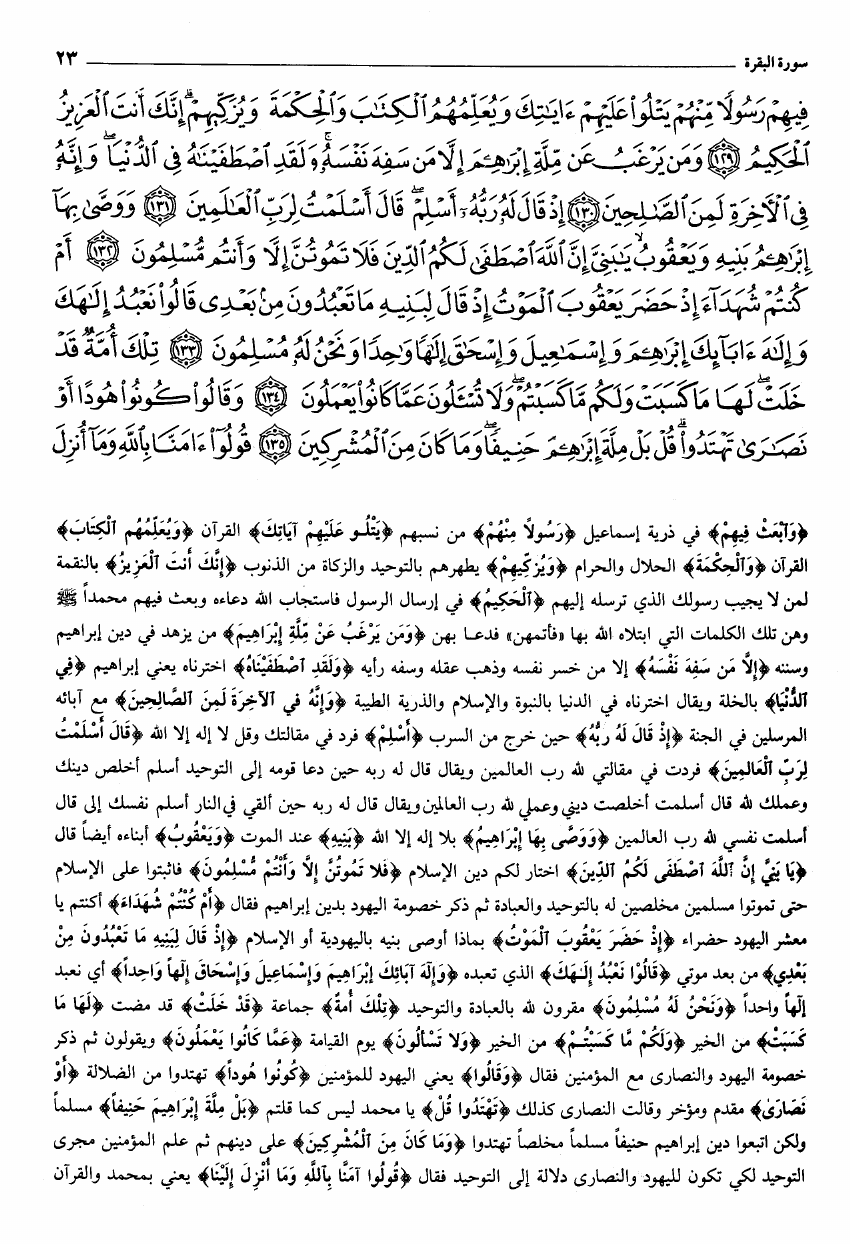 سورة البقرة ٢٣
فِيهِمْ رَسُولًا مِّنْهُمْ يَتْلُوا۟ عَلَيْهِمْ ءَايَٰتِكَ وَيُعَلِّمُهُمُ ٱلْكِتَٰبَ وَٱلْحِكْمَةَ وَيُزَكِّيهِمْ ۚ إِنَّكَ أَنتَ ٱلْعَزِيزُ
ٱلْحَكِيمُ ﴿١٢٩﴾ وَمَن يَرْغَبُ عَن مِّلَّةِ إِبْرَٰهِۦمَ إِلَّا مَن سَفِهَ نَفْسَهُۥ ۚ وَلَقَدِ ٱصْطَفَيْنَٰهُ فِى ٱلدُّنْيَا ۖ وَإِنَّهُۥ
فِى ٱلْءَاخِرَةِ لَمِنَ ٱلصَّٰلِحِينَ ﴿١٣٠﴾ إِذْ قَالَ لَهُۥ رَبُّهُۥٓ أَسْلِمْ ۖ قَالَ أَسْلَمْتُ لِرَبِّ ٱلْعَٰلَمِينَ ﴿١٣١﴾ وَوَصَّىٰ بِهَآ
إِبْرَٰهِۦمُ بَنِيهِ وَيَعْقُوبُ يَٰبَنِىَّ إِنَّ ٱللَّهَ ٱصْطَفَىٰ لَكُمُ ٱلدِّينَ فَلَا تَمُوتُنَّ إِلَّا وَأَنتُم مُّسْلِمُونَ ﴿١٣٢﴾ أَمْ
كُنتُمْ شُهَدَآءَ إِذْ حَضَرَ يَعْقُوبَ ٱلْمَوْتُ إِذْ قَالَ لِبَنِيهِ مَا تَعْبُدُونَ مِنۢ بَعْدِى قَالُوا۟ نَعْبُدُ إِلَٰهَكَ
وَإِلَٰهَ ءَابَآئِكَ إِبْرَٰهِۦمَ وَإِسْمَٰعِيلَ وَإِسْحَٰقَ إِلَٰهًا وَٰحِدًا وَنَحْنُ لَهُۥ مُسْلِمُونَ ﴿١٣٣﴾ تِلْكَ أُمَّةٌ قَدْ
خَلَتْ ۖ لَهَا مَا كَسَبَتْ وَلَكُم مَّا كَسَبْتُمْ ۖ وَلَا تُسْـَٔلُونَ عَمَّا كَانُوا۟ يَعْمَلُونَ ﴿١٣٤﴾ وَقَالُوا۟ كُونُوا۟ هُودًا أَوْ
نَصَٰرَىٰ تَهْتَدُوا۟ ۗ قُلْ بَلْ مِلَّةَ إِبْرَٰهِۦمَ حَنِيفًا ۖ وَمَا كَانَ مِنَ ٱلْمُشْرِكِينَ ﴿١٣٥﴾ قُولُوٓا۟ ءَامَنَّا بِٱللَّهِ وَمَآ أُنزِلَ
﴿وَٱبْعَثْ فِيهِمْ﴾ في ذرية إسماعيل ﴿رَسُولاً مِنْهُمْ﴾ من نسبهم ﴿يَتْلُو عَلَيْهِمْ آيَاتِكَ﴾ القرآن ﴿وَيُعَلِّمُهُم ٱلْكِتَابَ﴾
القرآن ﴿وَٱلْحِكْمَةَ﴾ الحلال والحرام ﴿وَيُزَكِّيهِمْ﴾ يطهرهم بالتوحيد والزكاة من الذنوب ﴿إِنَّكَ أَنتَ ٱلْعَزِيزُ﴾ بالنقمة
لمن لا يجيب رسولك الذي ترسله إليهم ﴿ٱلْحَكِيمُ﴾ في إرسال الرسول فاستجاب الله دعاءه وبعث فيهم محمداً ﷺ
وهن تلك الكلمات التي ابتلاه الله بها «فأتمهن» فدعا بهن ﴿وَمَن يَرْغَبُ عَنْ مِّلَّةِ إِبْرَاهِيمَ﴾ من يزهد في دين إبراهيم
وسننه ﴿إِلَّا مَن سَفِهَ نَفْسَهُ﴾ إلا من خسر نفسه وذهب عقله وسفه رأيه ﴿وَلَقَدِ ٱصْطَفَيْنَاهُ﴾ اخترناه يعني إبراهيم ﴿فِي
ٱلدُّنْيَا﴾ بالخلة ويقال اخترناه في الدنيا بالنبوة والإسلام والذرية الطيبة ﴿وَإِنَّهُ في ٱلآخِرَةَ لَمِنَ ٱلصَّالِحِينَ﴾ مع آبائه
المرسلين في الجنة ﴿إِذْ قَالَ لَهُ رَبُّهُ﴾ حين خرج من السرب ﴿أَسْلِمْ﴾ فرد في مقالتك وقل لا إله إلا الله ﴿قَالَ أَسْلَمْتُ
لِرَبِّ ٱلْعَالَمِينَ﴾ فردت في مقالتي لله رب العالمين ويقال قال له ربه حين دعا قومه إلى التوحيد أسلم أخلص دينك
وعملك لله قال أسلمت أخلصت ديني وعملي لله رب العالمين ويقال قال له ربه حين ألقي في النار أسلم نفسك إلى قال
أسلمت نفسي لله رب العالمين ﴿وَوَصَّى بِهَا إِبْرَاهِيمُ﴾ بلا إله إلا الله ﴿بَنِيهِ﴾ عند الموت ﴿وَيَعْقُوبُ﴾ أبناءه أيضاً قال
﴿يَا بَنِيَّ إِنَّ ٱللَّهَ ٱصْطَفَى لَكُمُ ٱلدِّينَ﴾ اختار لكم دين الإسلام ﴿فَلا تَمُوتُنَّ إِلَّا وَأَنْتُمْ مُّسْلِمُونَ﴾ فاثبتوا على الإسلام
حتى تموتوا مسلمين مخلصين له بالتوحيد والعبادة ثم ذكر خصومة اليهود بدين إبراهيم فقال ﴿أَمْ كُنْتُمْ شُهَدَاءَ﴾ أكنتم يا
معشر اليهود حضراء ﴿إِذْ حَضَرَ يَعْقُوبَ ٱلْمَوْتُ﴾ بماذا أوصى بنيه باليهودية أو الإسلام ﴿إِذْ قَالَ لِبَنِيهِ مَا تَعْبُدُونَ مِنْ
بَعْدِي﴾ من بعد موتي ﴿قَالُوْا نَعْبُدُ إِلَـٰهَكَ﴾ الذي تعبده ﴿وَإِلَهَ آبَائِكَ إِبْرَاهِيمَ وَإِسْمَاعِيلَ وَإِسْحَاقَ إِلَهاً وَاحِداً﴾ أي نعبد
إلهاً واحداً ﴿وَنَحْنُ لَهُ مُسْلِمُونَ﴾ مقرون لله بالعبادة والتوحيد ﴿تِلْكَ أُمةٌ﴾ جماعة ﴿قَدْ خَلَتْ﴾ قد مضت ﴿لَهَا مَا
كَسَبَتْ﴾ من الخير ﴿وَلَكُمْ مَّا كَسَبْتُـمْ﴾ من الخير ﴿وَلا تَسْأَلُونَ﴾ يوم القيامة ﴿عَمَّا كَانُوا يَعْمَلُونَ﴾ ويقولون ثم ذكر
خصومة اليهود والنصارى مع المؤمنين فقال ﴿وَقَالُوا﴾ يعني اليهود للمؤمنين ﴿كُونُوا هُوداً﴾ تهتدوا من الضلالة ﴿أَوْ
نَصَارَىٰ﴾ مقدم ومؤخر وقالت النصارى كذلك ﴿تَهْتَدُوا قُلْ﴾ يا محمد ليس كما قلتم ﴿بَلْ مِلَّةَ إِبْرَاهِيمَ حَنِيفاً﴾ مسلماً
ولكن اتبعوا دين إبراهيم حنيفاً مسلماً مخلصاً تهتدوا ﴿وَمَا كَانَ مِنَ ٱلْمُشْرِكِينَ﴾ على دينهم ثم علم المؤمنين مجرى
التوحيد لكي تكون لليهود والنصارى دلالة إلى التوحيد فقال ﴿قُولُوا آمَنَّا بِٱللَّهِ وَمَا أُنْزِلَ إِلَيْنَا﴾ يعني بمحمد والقرآن